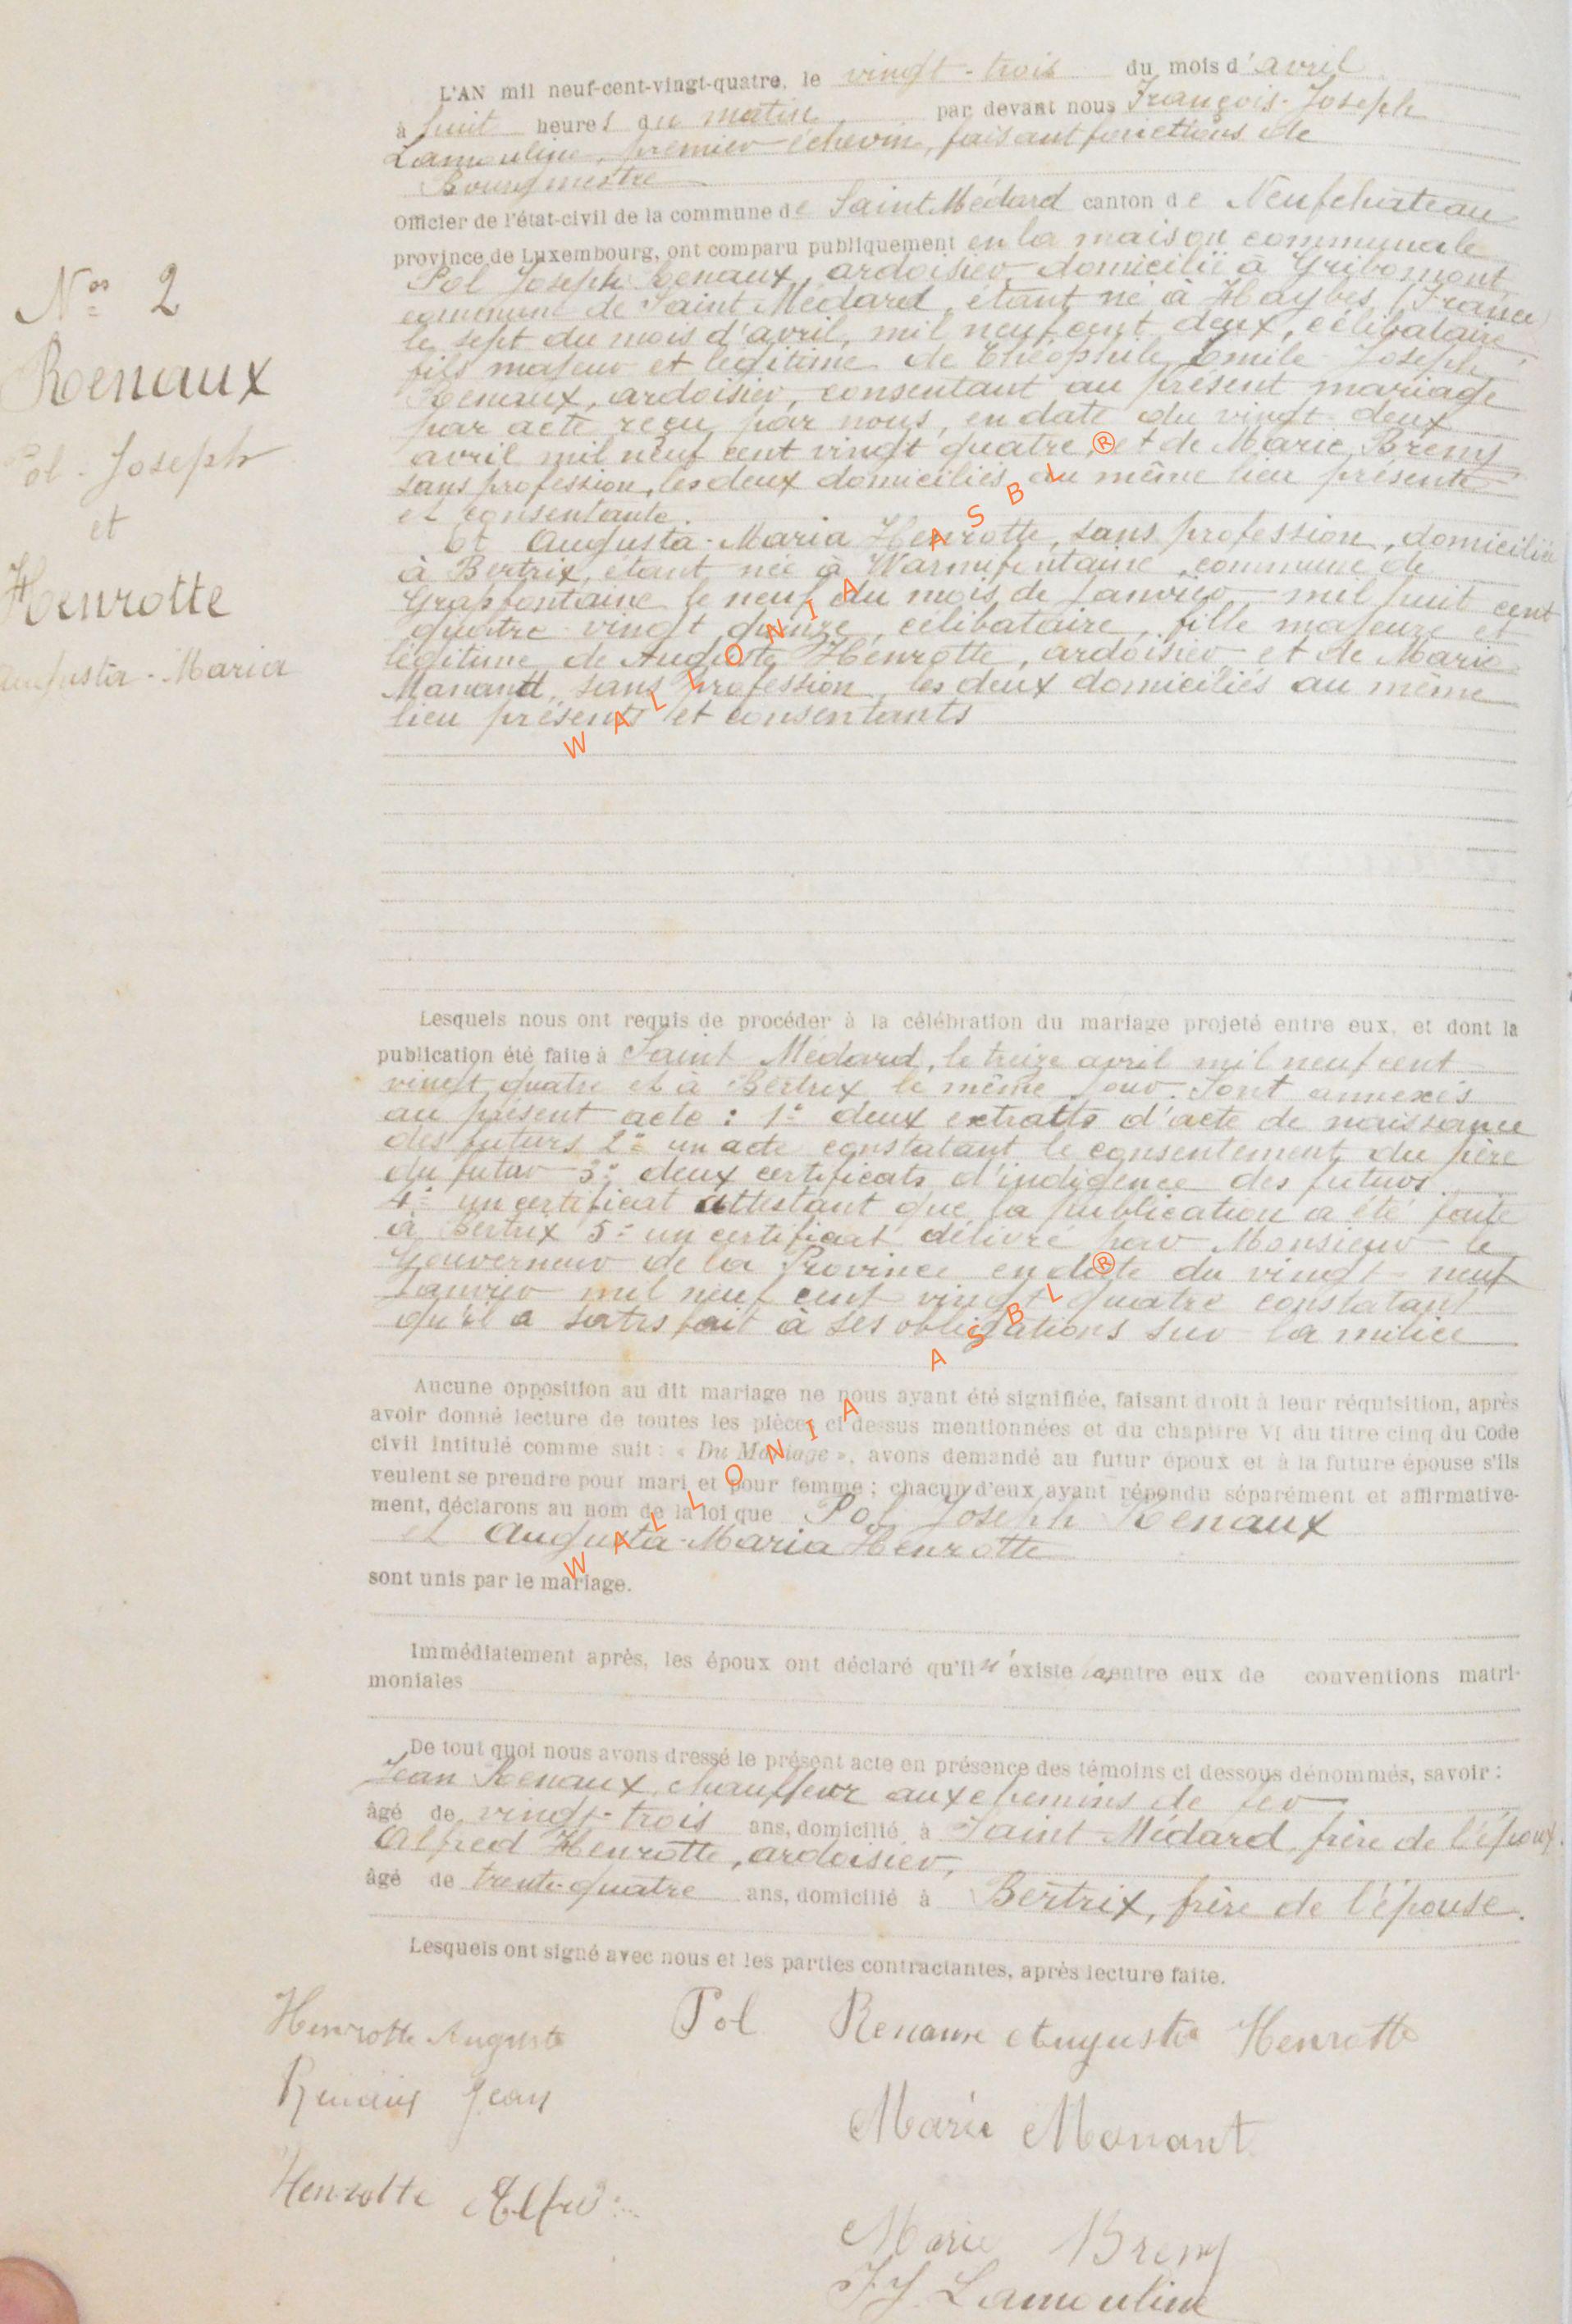 L'AN mil neuf-cent-vingt-quatre, le vingt-trois du mois d'avril
à huit heures du matin par devant nous François-Joseph
Lamouline, premier échevin, faisant fonctions de
Bourgmestre
Officier de l'état-civil de la commune de Saint Médard canton de Neufchâteau
province de Luxembourg, ont comparu publiquement en la maison communale
N° 2
Renaux
Pol-Joseph
et
Henrotte
Augusta-Maria
Pol Joseph Renaux, ardoisier domicilié à Gribomont
commune de Saint Médard, étant né à Haybes (France)
le sept du mois d'avril, mil neuf cent deux, célibataire,
fils majeur et légitime de Théophile Emile Joseph
Renaux, ardoisier, consentant au présent mariage
par acte reçu par nous, en date du vingt deux
avril mil neuf cent vingt quatre, et de Marie Bremy
sans profession, les deux domiciliés au même lieu présente
et consentante.
Et Augusta-Maria Henrotte, sans profession, domiciliée
à Bertrix, étant née à Warmifontaine, commune de
Grapfontaine le neuf du mois de Janvier mil huit cent
quatre-vingt quinze, célibataire, fille majeure et
légitime de Auguste Henrotte, ardoisier et de Marie
Manandt, sans profession, les deux domiciliés au même
lieu présents et consentants
WALLONIA ASBL ®
Lesquels nous ont requis de procéder à la célébration du mariage projeté entre eux, et dont la
publication été faite à Saint Médard, le treize avril mil neuf cent
vingt quatre et à Bertrix le même jour. Sont annexés
au présent acte : 1° deux extraits d'acte de naissance
des futurs 2° un acte constatant le consentement du père
du futur 3° deux certificats d'indigence des futurs.
4° un certificat attestant que la publication a été faite
à Bertrix 5° un certificat délivré par Monsieur le
Gouverneur de la Province en date du vingt-neuf
Janvier mil neuf cent vingt quatre constatant
qu'il a satisfait à ses obligations sur la milice
Aucune opposition au dit mariage ne nous ayant été signifiée, faisant droit à leur réquisition, après
avoir donné lecture de toutes les pièces ci dessus mentionnées et du chapitre VI du titre cinq du Code
civil intitulé comme suit : « Du Mariage », avons demandé au futur époux et à la future épouse s'ils
veulent se prendre pour mari et pour femme ; chacun d'eux ayant répondu séparément et affirmative-
ment, déclarons au nom de la loi que Pol Joseph Renaux
et Augusta-Maria Henrotte
sont unis par le mariage.
WALLONIA ASBL ®
Immédiatement après, les époux ont déclaré qu'il n'existe pas entre eux de conventions matri-
moniales
De tout quoi nous avons dressé le présent acte en présence des témoins ci dessous dénommés, savoir :
Jean Renaux, chauffeur aux chemins de fer
âgé de vingt-trois ans, domicilié à Saint-Médard, frère de l'époux.
Alfred Henrotte, ardoisier,
âgé de trente-quatre ans, domicilié à Bertrix, frère de l'épouse.
Lesquels ont signé avec nous et les parties contractantes, après lecture faite.
Henrotte Auguste Pol Renaux Augusta Henrotte
Renaux Jean
Marie Monant
Henrotte Alfred
Marie Bremy
F J Lamouline